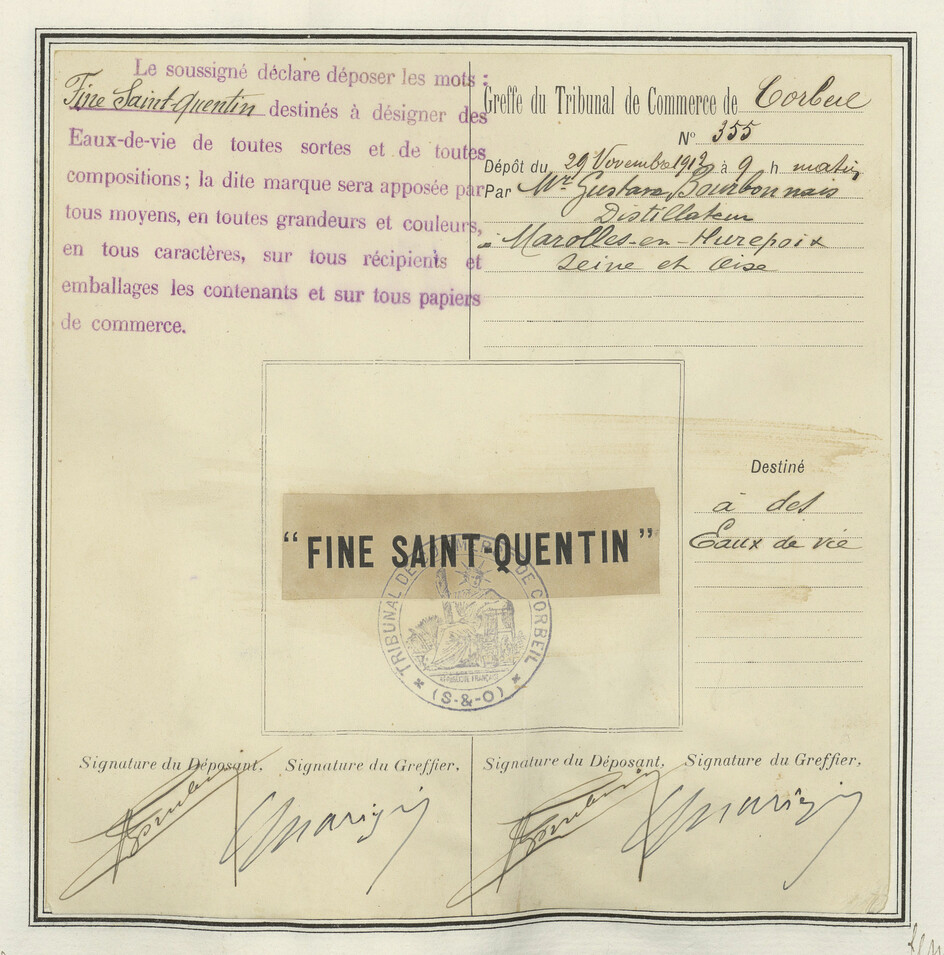 Le soussigné déclare déposer les mots :
Fine Saint-Quentin destinés à désigner des
Eaux-de-vie de toutes sortes et de toutes
compositions; la dite marque sera apposée par
tous moyens, en toutes grandeurs et couleurs,
en tous caractères, sur tous récipients et
emballages les contenants et sur tous papiers
de commerce.
Greffe du Tribunal de Commerce de Corbeil
N° 355
Dépôt du 29 Novembre 1912 à 9 h matin
Par Mr Gustave Bourbonnais
Distillateur
à Marolles-en-Hurepoix
Seine et Oise
"FINE SAINT-QUENTIN"
TRIBUNAL DE COMMERCE DE CORBEIL
RÉPUBLIQUE FRANÇAISE
(S-&-O)
Destiné
à des
Eaux de vie
Signature du Déposant. Signature du Greffier.
Signature du Déposant, Signature du Greffier,